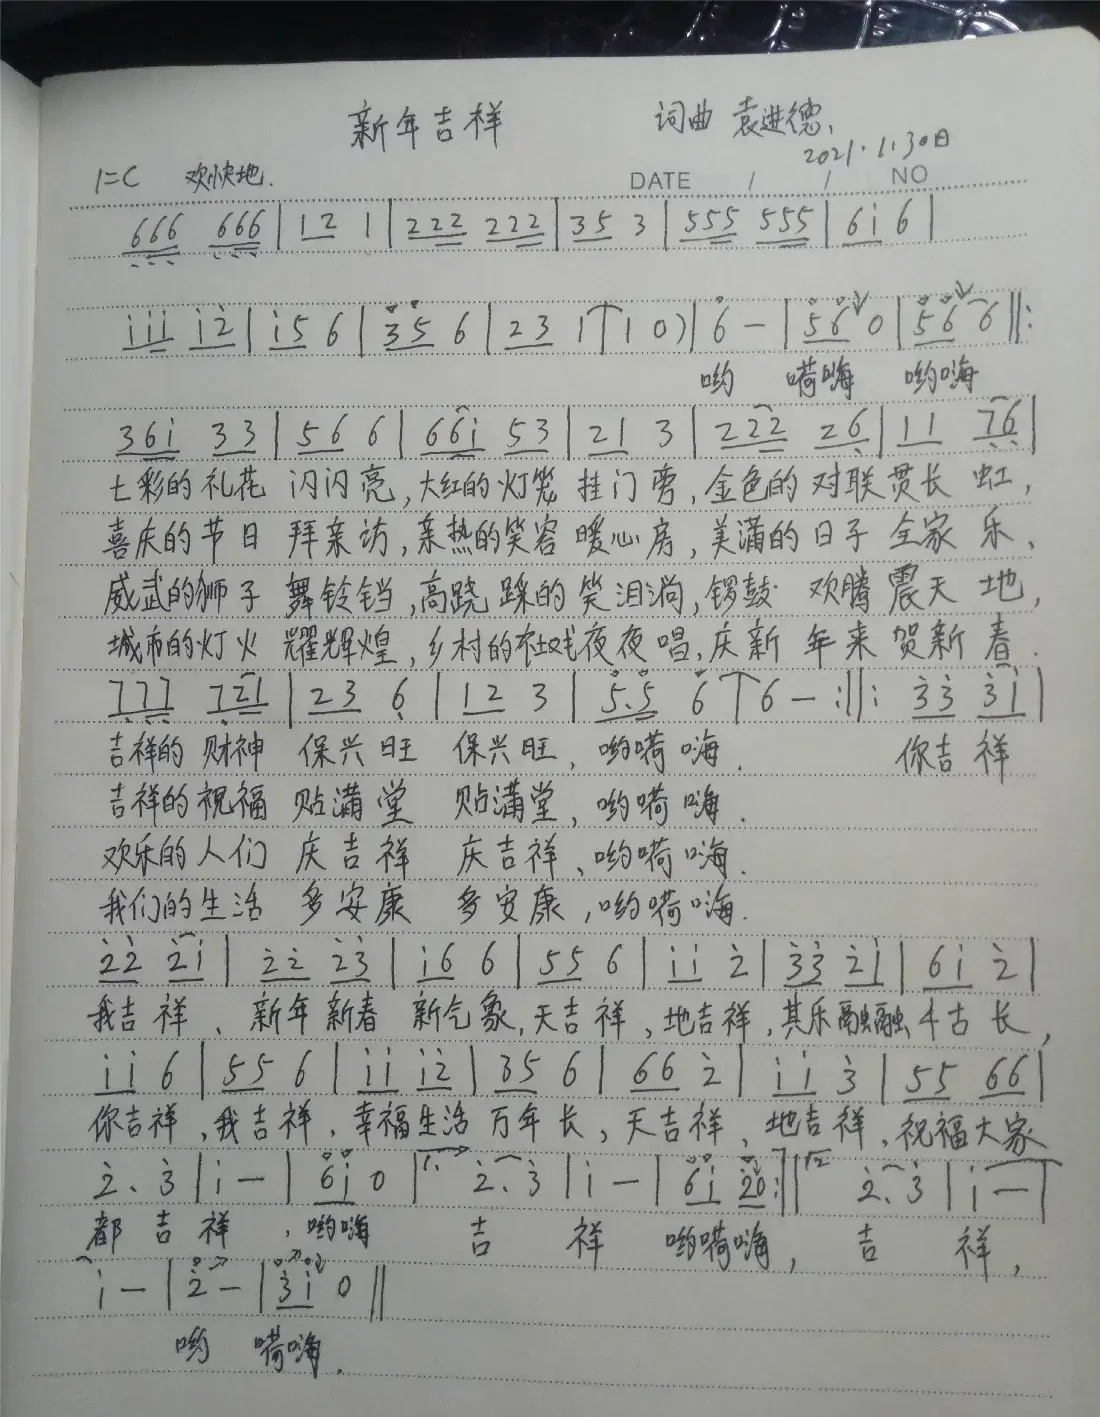 新年吉祥 词曲 袁进德
2021.1.30日
1=C 欢快地. DATE / / NO
666 666 | 12 1 | 222 222 | 35 3 | 555 555 | 6i 6 |
iii i2 | i5 6 | 35 6 | 23 1 | 1 0) | 6 — | 56 0 | 56 6 ||:
哟 嗬嗨 哟嗨
36i 33 | 56 6 | 66i 53 | 21 3 | 222 26 | 11 76 |
七彩的礼花 闪闪亮,大红的灯笼 挂门旁,金色的对联贯长虹,
喜庆的节日 拜亲访,亲热的笑容暖心房,美满的日子全家乐、
威武的狮子 舞铃铛,高跷踩的笑泪淌,锣鼓 欢腾震天地,
城市的灯火 耀辉煌,乡村的社戏夜夜唱,庆新年来贺新春.
777 721 | 23 6 | 12 3 | 5.5 6 | 6 — :||: 33 3i |
吉祥的财神 保兴旺 保兴旺,哟嗬嗨. 你吉祥
吉祥的祝福 贴满堂 贴满堂,哟嗬嗨.
欢乐的人们 庆吉祥 庆吉祥、哟嗬嗨.
我们的生活 多安康 多安康,哟嗬嗨.
22 2i | 22 23 | i6 6 | 55 6 | ii 2 | 33 2i | 6i 2 |
我吉祥、新年新春 新气象,天吉祥,地吉祥,其乐融融千古长,
ii 6 | 55 6 | ii i2 | 35 6 | 66 2 | ii 3 | 55 66 |
你吉祥,我吉祥,幸福生活万年长,天吉祥、地吉祥,祝福大家
2. 3 | i — | 6i 0 | 1. 2. 3 | i — | 6i 20 :|| 2 2. 3 | i — |
都吉祥,哟嗨 吉 祥 哟嗬嗨, 吉 祥,
i — | 2 — | 3i 0 ||
哟 嗬嗨.